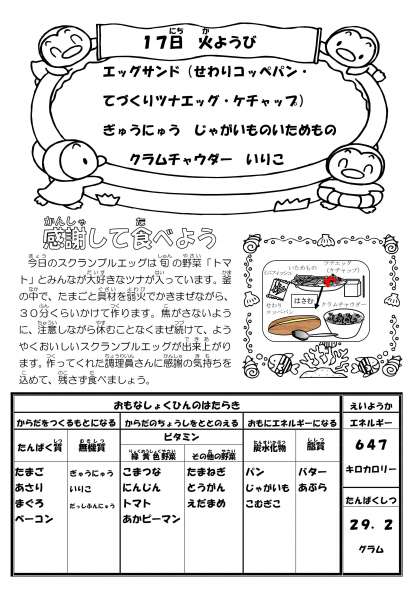 17日 火ようび
エッグサンド（せわりコッペパン・
てづくりツナエッグ・ケチャップ）
ぎゅうにゅう　じゃがいものいためもの
クラムチャウダー　いりこ
感謝して食べよう
今日のスクランブルエッグは旬の野菜「トマ
ト」とみんなが大好きなツナが入っています。釜
の中で、たまごと具材を弱火でかきまぜながら、
３０分くらいかけて作ります。焦がさないよう
に、注意しながら休むことなくまぜ続けて、よう
やくおいしいスクランブルエッグが出来上がり
ます。作ってくれた調理員さんに感謝の気持ちを
込めて、残さず食べましょう。
ツナエッグ
（ケチャップ）
いためもの
はさむ
クラムチャウダー
せわり
コッペパン
おもなしょくひんのはたらき
えいようか
からだをつくるもとになる　からだのちょうしをととのえる　おもにエネルギーになる
エネルギー
たんぱく質　無機質　ビタミン　炭水化物　脂質
緑黄色野菜　その他の野菜
647
キロカロリー
たまご　ぎゅうにゅう　こまつな　たまねぎ　パン　バター
あさり　いりこ　にんじん　とうがん　じゃがいも　あぶら
まぐろ　だっしふんにゅう　トマト　えだまめ　こむぎこ
ベーコン　あかピーマン
たんぱくしつ
29.2
グラム